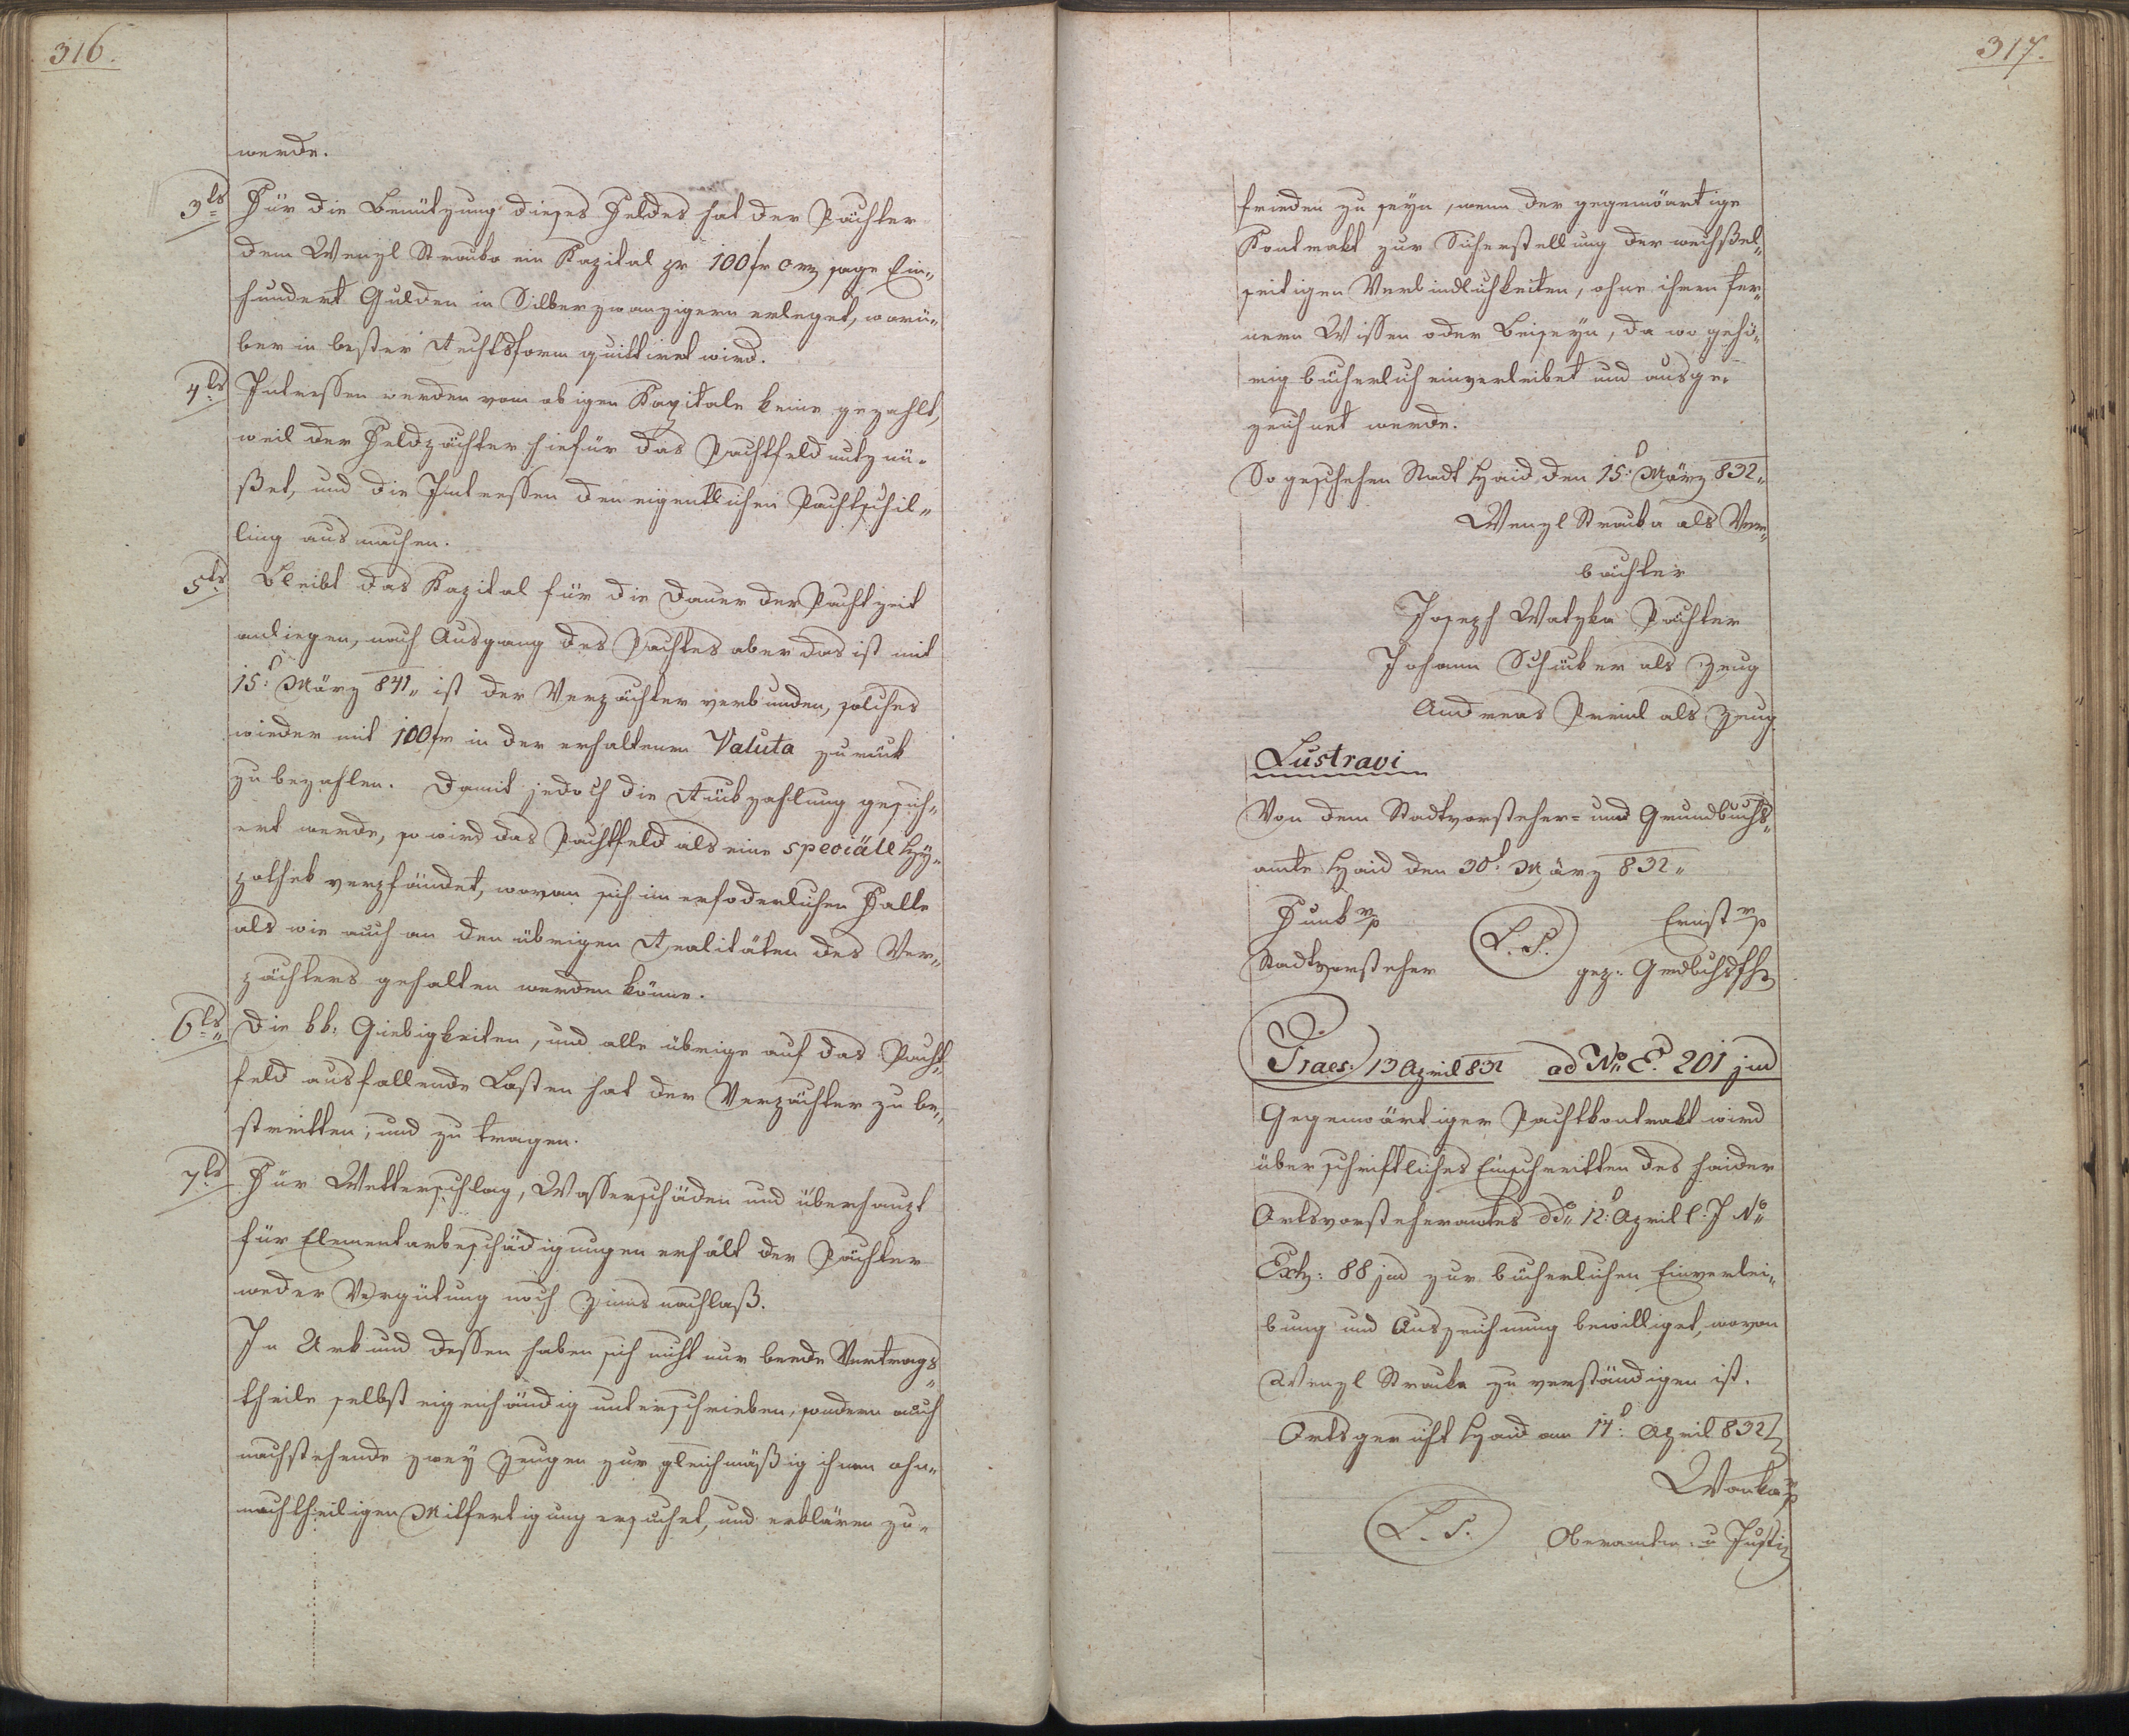 316.
werde.
3tls Für die Benützung dieses Feldes hat der Pächter
dem Wenzl Strauka ein Kapital pr 100 fr Cmz sage Ein„
hundert Gulden in Silberzwanzigern erleget, worü„
ber in bester Rechtsform quittiret wird.
4tls Intressen werden vom obigen Kapitale keine gezahlt,
weil der Feldpächter hiefür das Pachtfeld nutznü„
ßet, und die Interessen den eigentlichen Pachtschil„
ling ausmachen.
5ts Bleibt das Kapital für die Dauer der Pachtzeit
anliegen, nach Ausgang des Pachtes aber das ist mit
15: März 841„ ist der Verpächter verbunden, solches
wieder mit 100 fr in der erhaltenen Valuta zurück
zu bezahlen. Damit jedoch die Rückzahlung gesich„
ert werde, so wird das Pachtfeld als eine speciäll Hy„
pothek verpfändet, wovon sich im erfoderlichen Falle
als wie auch an den übrigen Realitäten des Ver„
pächters gehalten werden könne.
6tls„ Die kk: Giebigkeiten, und alle übrige auf das Pacht„
feld ausfallende Lasten hat der Verpächter zu be„
streitten, und zu tragen.
7tls Für Wetterschlag, Wasserschäden und überhaupt
für Elementarbeschädigungen erhält der Pächter
weder Vergütung noch Zinnsnachlaß.
In Urkund dessen haben sich nicht nur beede Vertrags„
theile selbst eigenhändig unterschrieben, sondern auch
nachstehende zwey Zeugen zur gleichmäßig ihnen ohn„
nachtheiligen Mitfertigung ersuchet, und erklären zu„
317.
frieden zu seyn, wenn der gegenwärtige
Kontrakt zur Sicherstellung der wechßel„
seitigen Verbindlichkeiten, ohne ihren fer„
nern Wissen oder Beiseyn, da wo gehö„
rig bücherlich einverleibet und ausge„
zeichnet werde.
So geschehen Stadt Haid den 15: März 832„
Wenzl Strauka als Ver„
bächter
Joseph Watzka Pächter
Johann Schicker als Zeug
Andreas Preinl als Zeug
Lustravi
Von dem Stadtvorsteher- und Grundbuchs„
amte Haid den 30t: März 832„
Funk mp Ernst mp
L. S.
Stadtvorsteher gez: Grdbuchsfh
Praes: 13 April 832 ad No E. 201 jud
Gegenwärtiger Pachtkontrakt wird
über schriftliches Einschreitten des Haider
Ortsvorsteheramtes ddo 12: April l: J No
Exh: 88 jud zur bücherlichen Einverlei„
bung und Auszeichnung bewilliget, wovon
Wenzl Strauka zu verständigen ist.
Ortsgericht Haid am 14: April 832
Wanka mp
L. S. Oberamtm. u Justiz